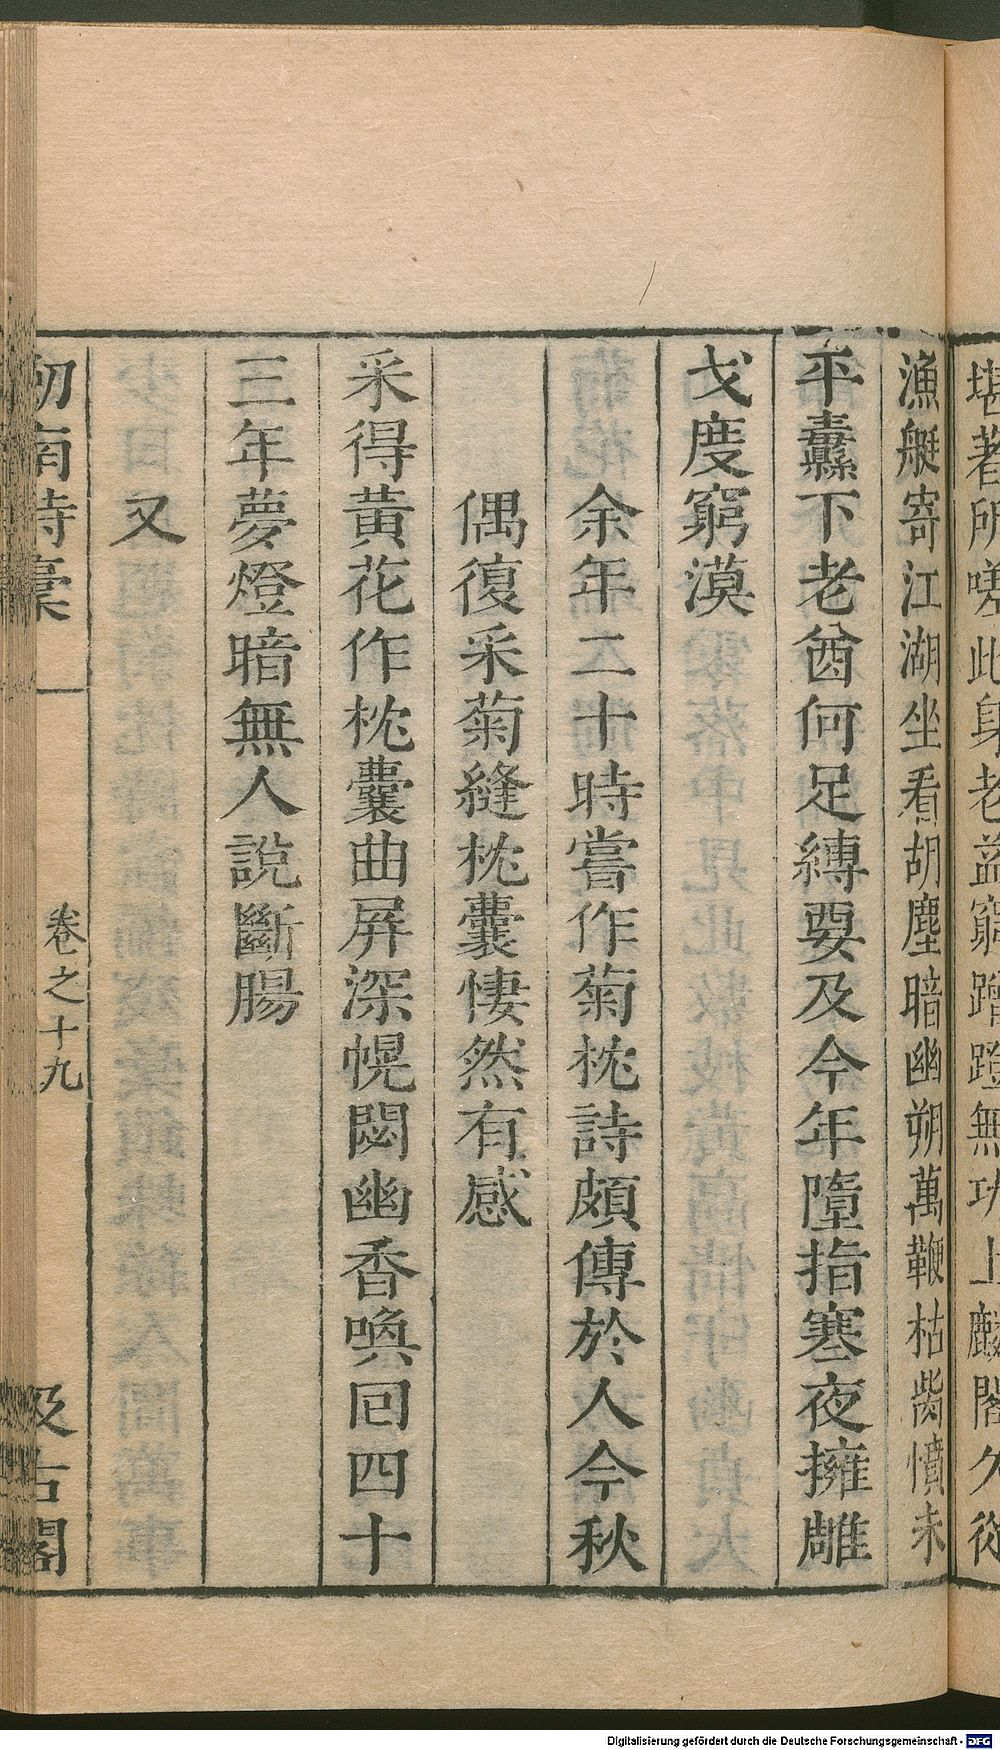 堪著所嗟此身老益窮蹭蹬無功上麟閣久從
漁艇寄江湖坐看胡塵暗幽朔萬鞭枯胔憤未
平纛下老酋何足縛要及今年墮指寒夜擁雕
戈度窮漠
余年二十時嘗作菊枕詩頗傳於人今秋
偶復采菊縫枕囊悽然有感
采得黃花作枕囊曲屏深幌閟幽香喚回四十
三年夢燈暗無人說斷腸
又
劒南詩藁
卷之十九
汲古閣
Digitalisierung gefördert durch die Deutsche Forschungsgemeinschaft - DFG